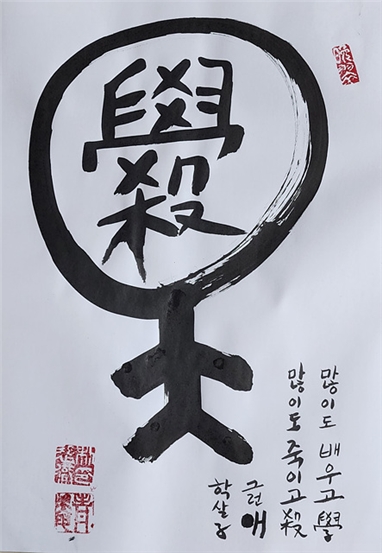 學
殺
많이도 배우고 學
많이도 죽이고 殺
그런 애
학살子